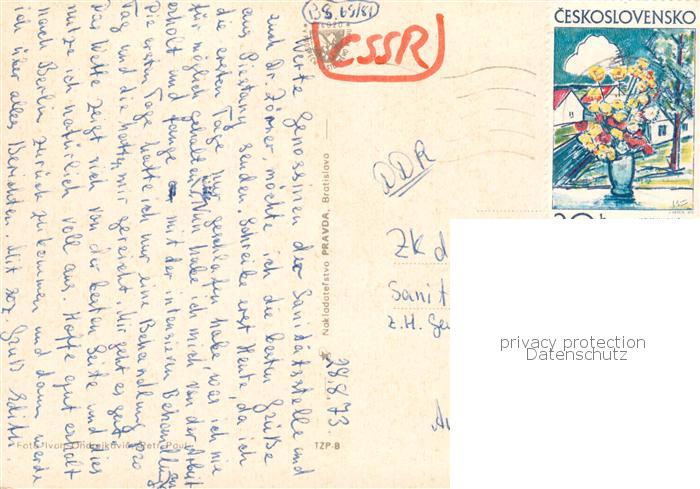 B 69/81
ČSSR
ČESKOSLOVENSKO
28.8.73
Werte Genossinen der Sanitätsstelle und
auch Dr. Zörner, möchte ich die besten Grüße
aus Piestany senden. Schreibe erst Heute, da ich
die ersten Tage nur geschlafen habe, was ich nie
für möglich gehalten. Nun habe ich mich von der Arbeit
erholt und fange mit der intensiven Behandlung
Die ersten Tage hatte ich nur eine Behandlung pro
Tag und die hatte mir gereicht. Mir geht es gut
Das Wetter zeigt sich von der besten Seite und dies
nutze ich natürlich voll aus. Hoffe gut erholt
nach Berlin zurück zu kommen und dann werde
ich über alles Berichten. Mit soz. Gruß Edith.
Foto: Ivan Ondrejkovič, Petr Paul
TZP-B
Nakladateľstvo PRAVDA, Bratislava
DDR
ZK d
Sanit
z.H. Ge
privacy protection
Datenschutz